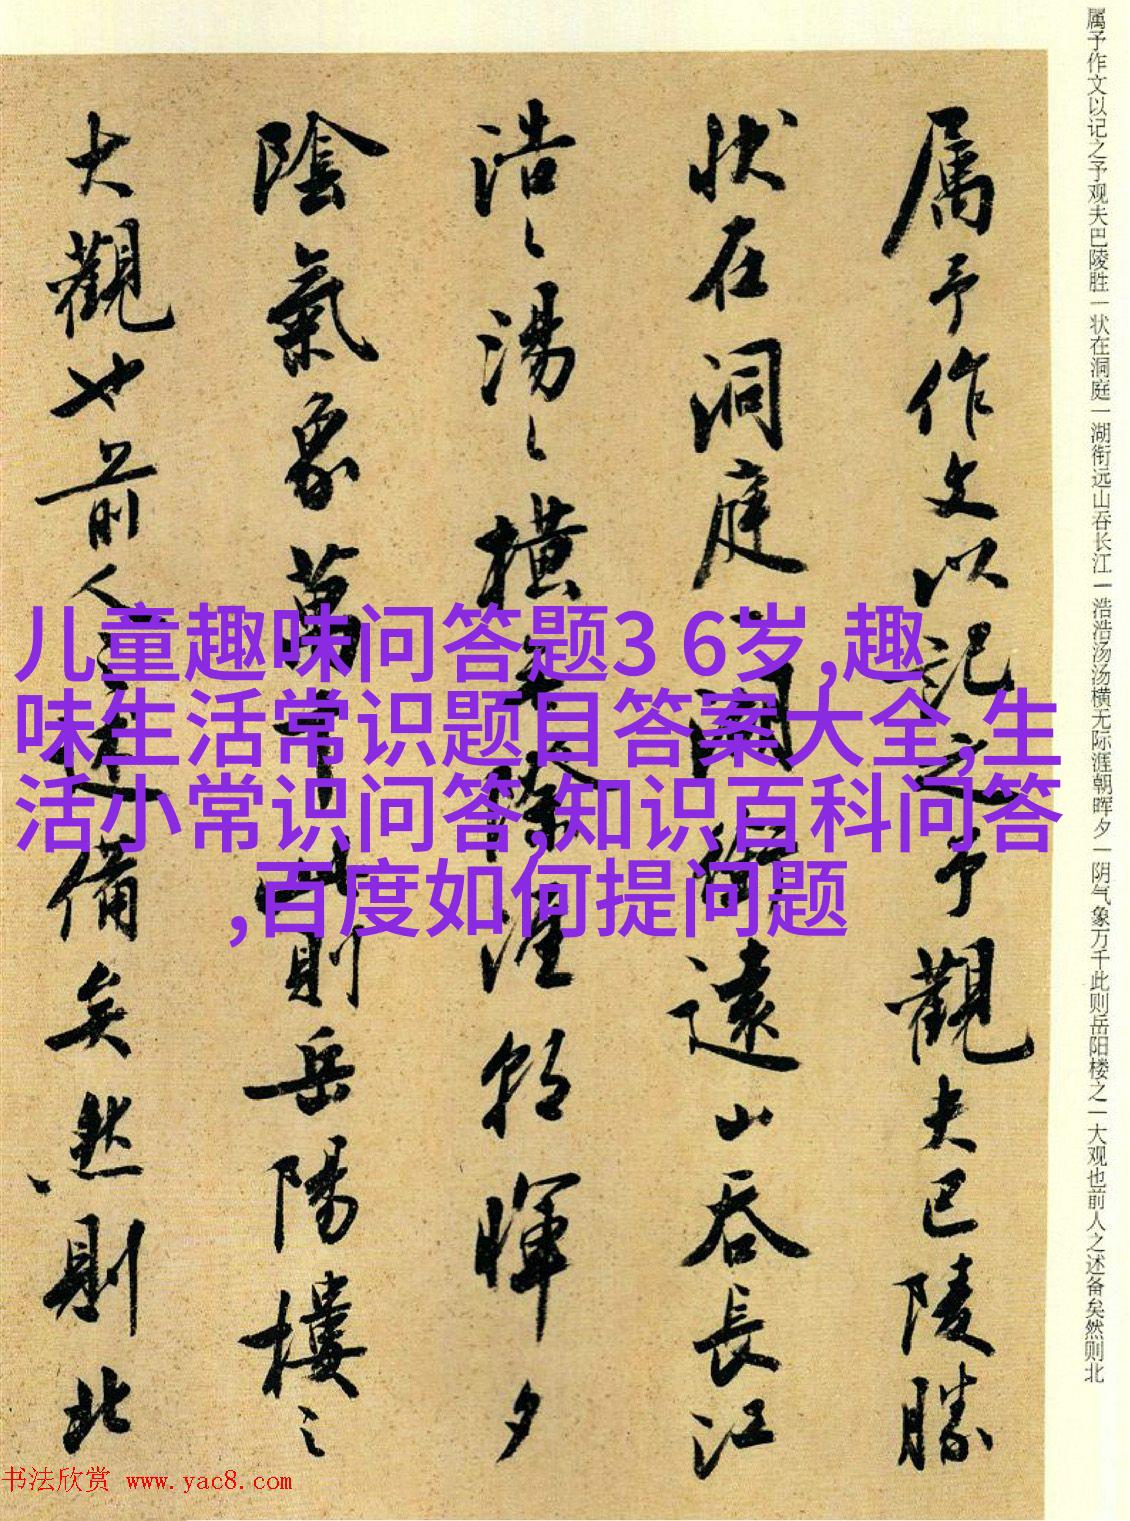 属予作文以记之予观夫巴陵胜一状在洞庭一湖衔远山吞长江一浩浩汤汤横无际涯朝晖夕一阴气象万千此则岳阳楼之一大观也前人之述备矣然则北
属予作文以記之予觀夫巴陵勝
状在洞庭一湖銜遠山吞長江
浩々湯々橫無際涯朝暉夕
陰氣象萬千此則岳陽樓之
大觀也前人之述備矣然則北
儿童趣味问答题3 6岁,趣
味生活常识题目答案大全,生
活小常识问答,知识百科问答
,百度如何提问题
书法欣赏 www.yac8.com